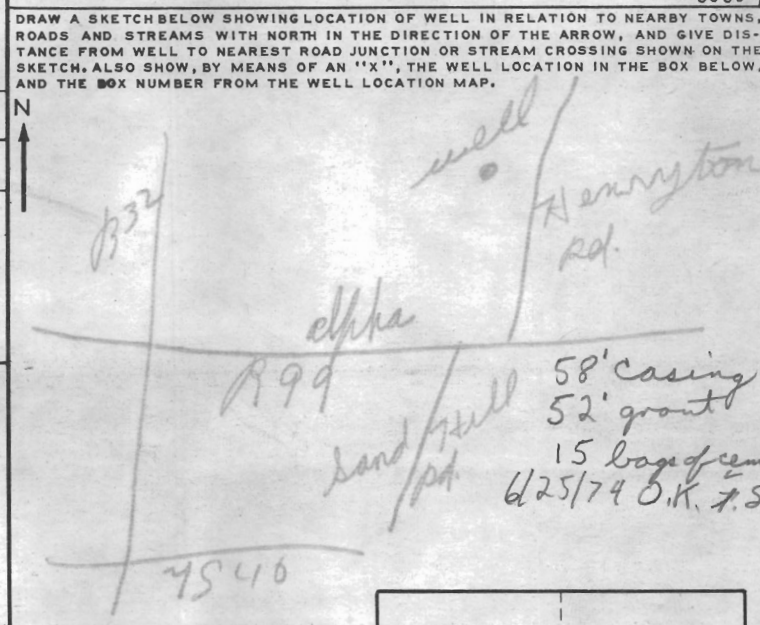 DRAW A SKETCH BELOW SHOWING LOCATION OF WELL IN RELATION TO NEARBY TOWNS,
ROADS AND STREAMS WITH NORTH IN THE DIRECTION OF THE ARROW, AND GIVE DIS-
TANCE FROM WELL TO NEAREST ROAD JUNCTION OR STREAM CROSSING SHOWN ON THE
SKETCH. ALSO SHOW, BY MEANS OF AN "X", THE WELL LOCATION IN THE BOX BELOW,
AND THE BOX NUMBER FROM THE WELL LOCATION MAP.
N
well
R32
Henryton
Rd.
alpha
R99
Sand Hill
Rd.
58' casing
52' grout
15 bags of cem
6/25/74 O.K. F.S
40